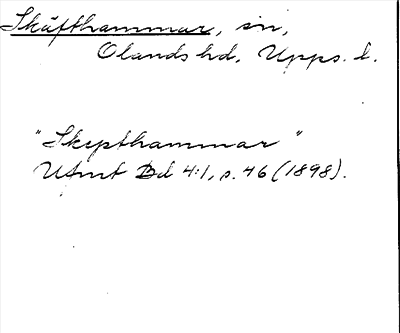 Skäfthammar, sn,
Olands hd, Upps. l.
"Skepthammar"
Utmt Bd 4:1, s. 46 (1898).